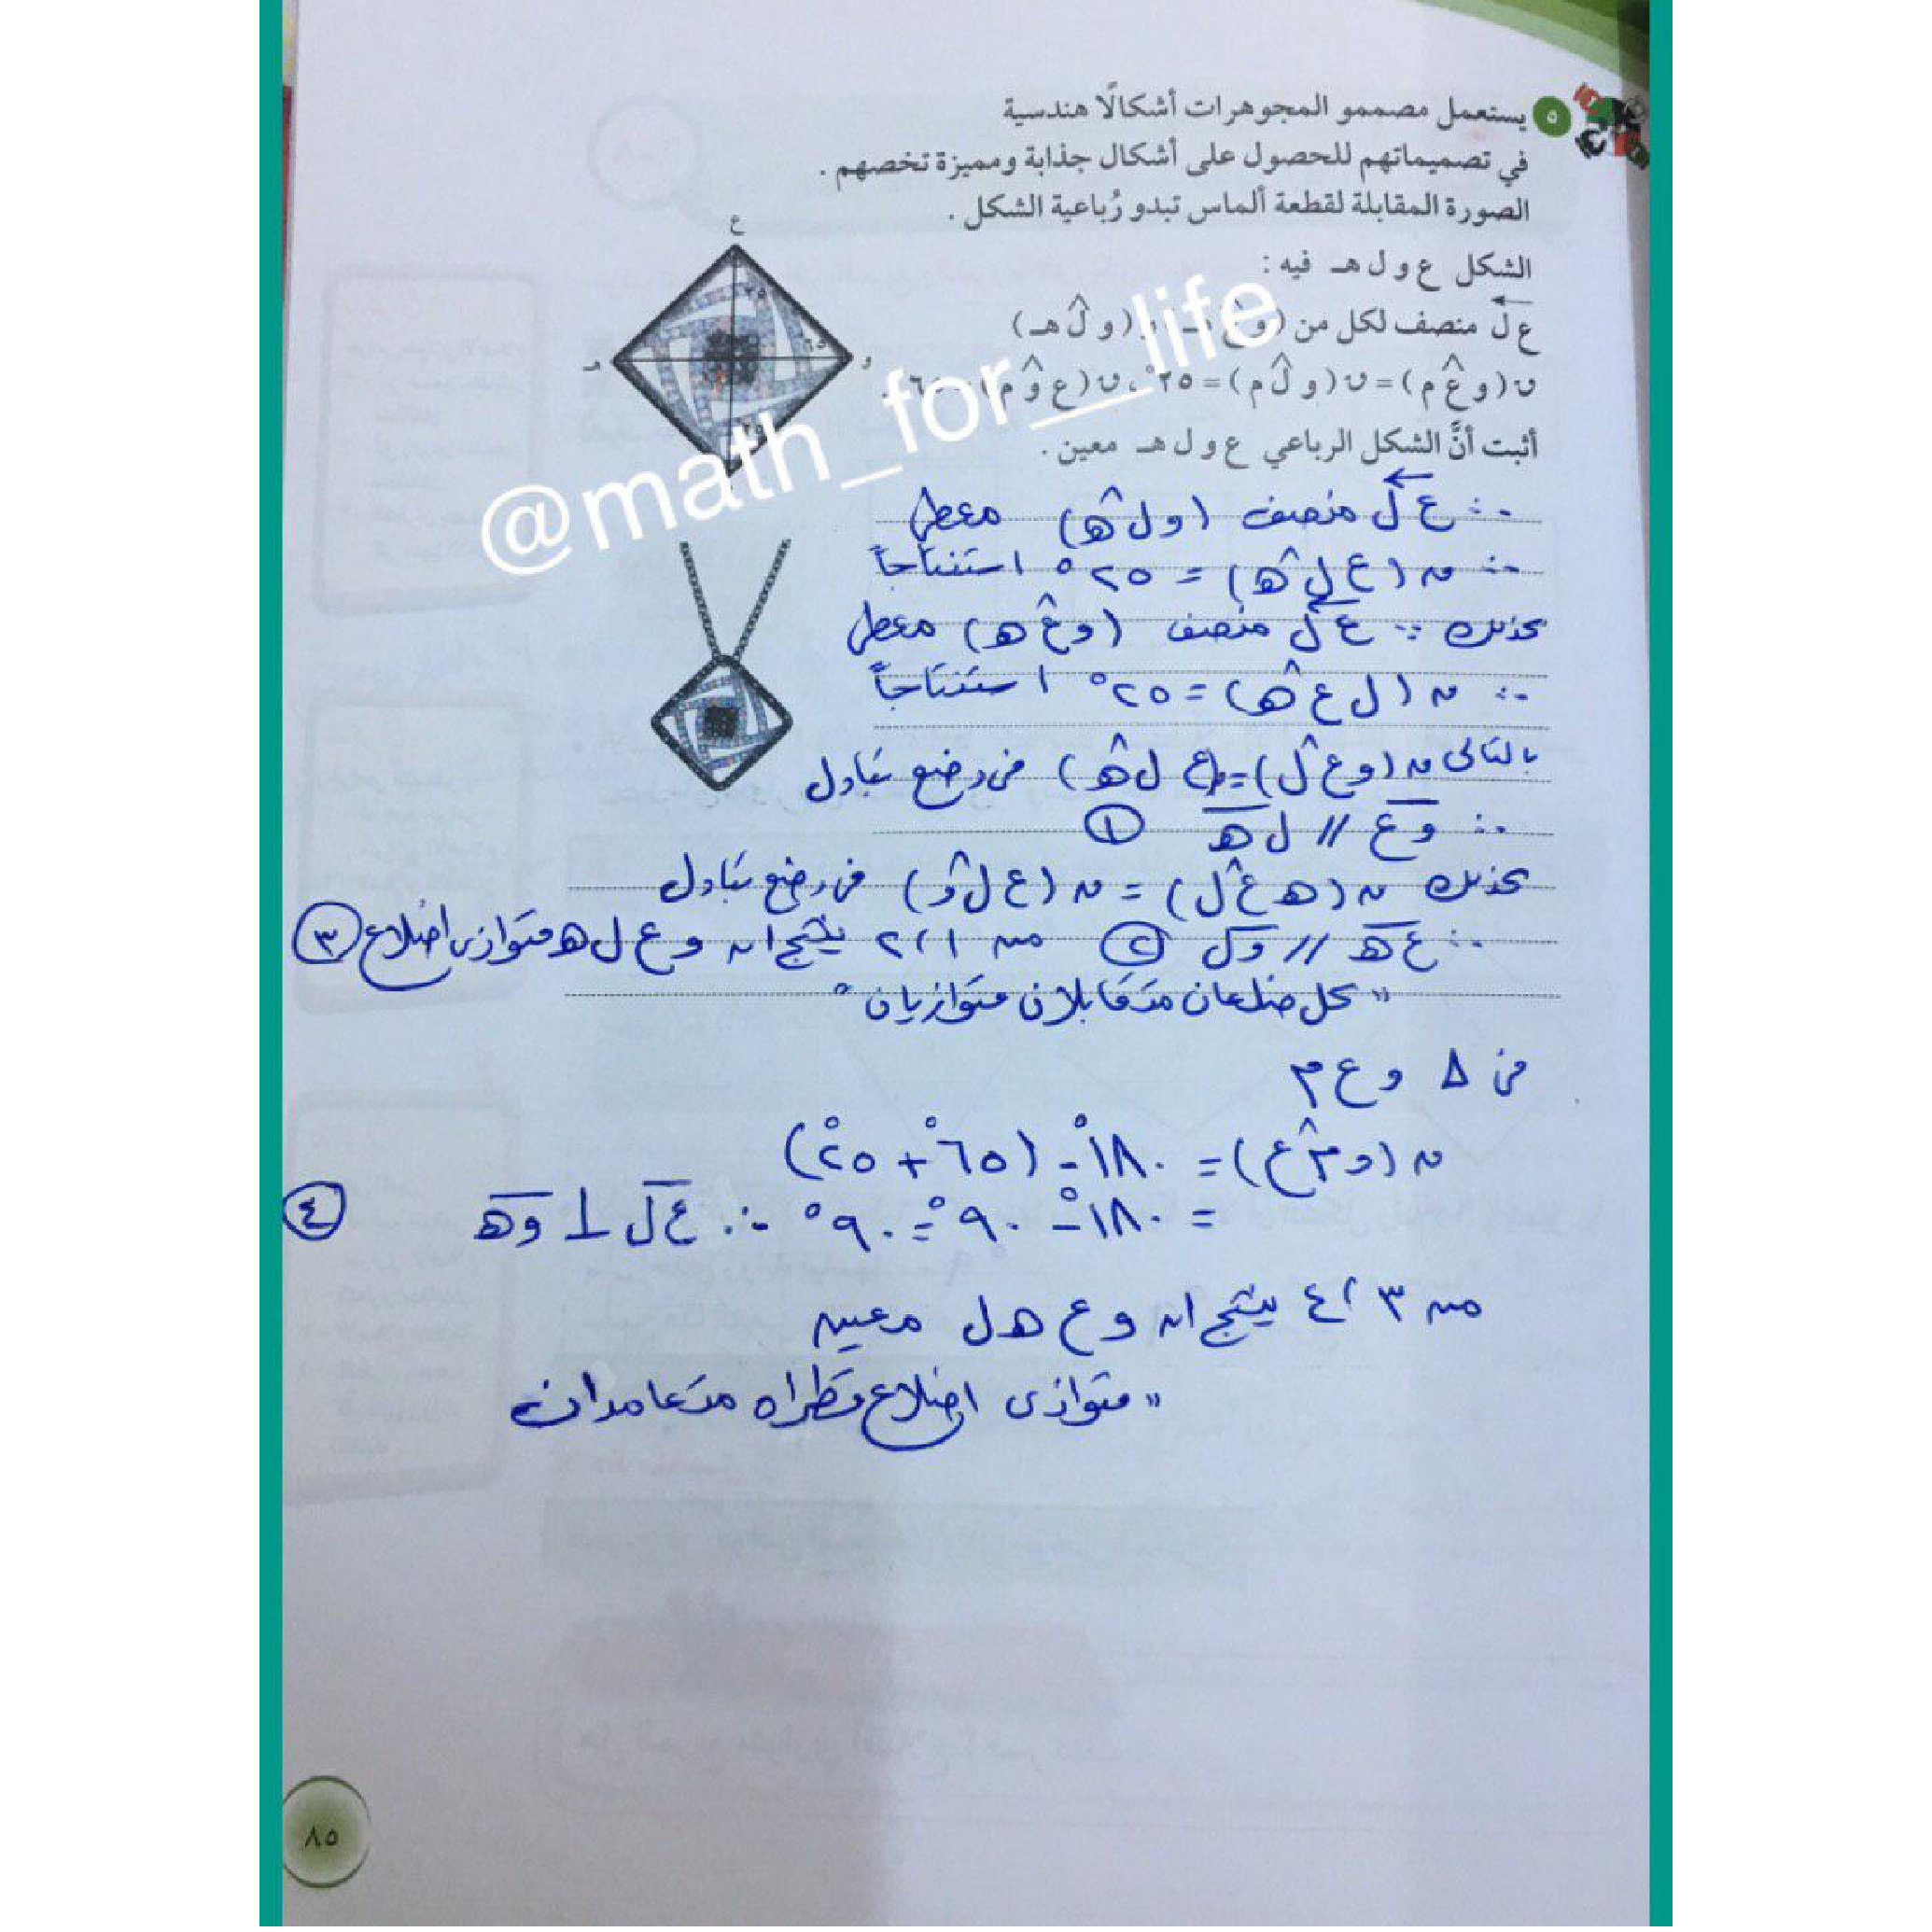 ٥ يستعمل مصممو المجوهرات أشكالًا هندسية
في تصميماتهم للحصول على أشكال جذابة ومميزة تخصهم .
الصورة المقابلة لقطعة ألماس تبدو رُباعية الشكل .
الشكل ع و ل هـ فيه :
ع ل منصف لكل من (و ع هـ) ، (و ل هـ)
ن (و ع م) = ن (و ل م) = ٢٥° ، ن (ع و م) = ٦٥° .
أثبت أنَّ الشكل الرباعي ع و ل هـ معين .
ع
٢٥
٦٥
و
هـ
٢٥
@math_for__life
∵ ع ل منصف (و ل هـ) معطى
∴ ن (ع ل هـ) = ٢٥° استنتاجاً
كذلك ∵ ع ل منصف (و ع هـ) معطى
∴ ن (ل ع هـ) = ٢٥° استنتاجاً
بالتالى ن (و ع ل) = (ع ل هـ) فى وضع تبادل
∴ و ع // ل هـ ①
كذلك ن (هـ ع ل) = ن (ع ل و) فى وضع تبادل
∴ ع هـ // و ل ② من ١ ، ٢ ينتج ان و ع ل هـ متوازى اضلاع ③
" كل ضلعان متقابلان متوازيان "
فى Δ و ع م
ن (و م ع) = ١٨٠° - (٦٥° + ٢٥°)
= ١٨٠° - ٩٠° = ٩٠° ∴ ع ل ⊥ و هـ ④
من ٣ ، ٤ ينتج ان و ع هـ ل معين
" متوازى اضلاع قطراه متعامدان
٨٥